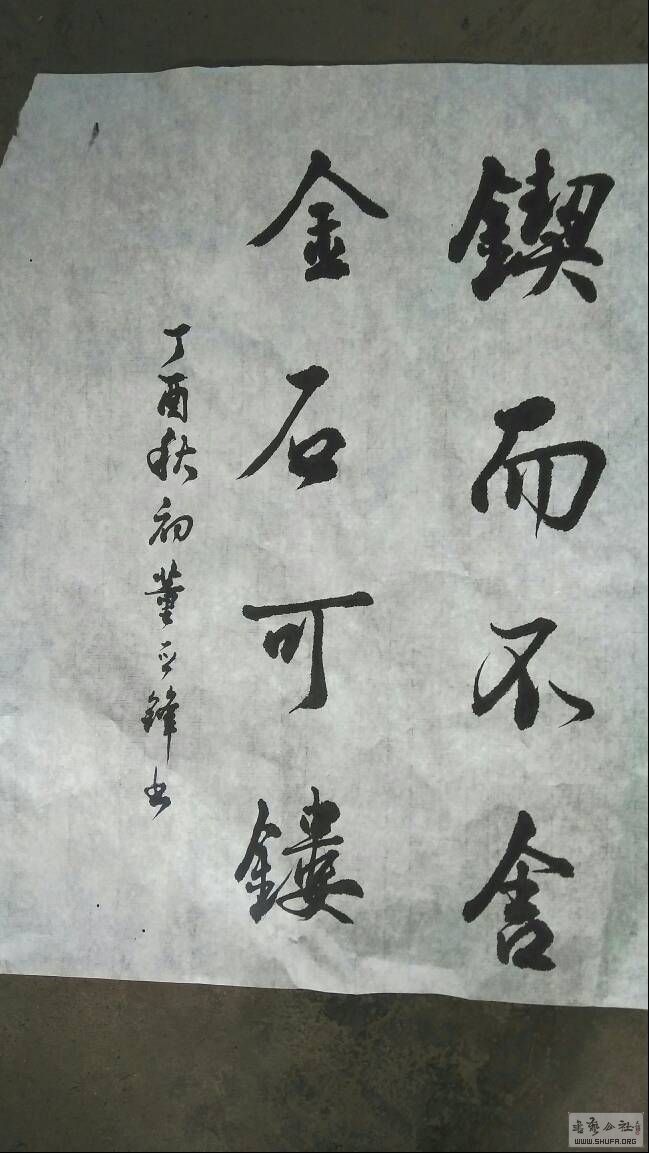 鍥而不舍
金石可鏤
丁酉秋初董平鋒书
书艺公社
WWW.SHUFA.ORG